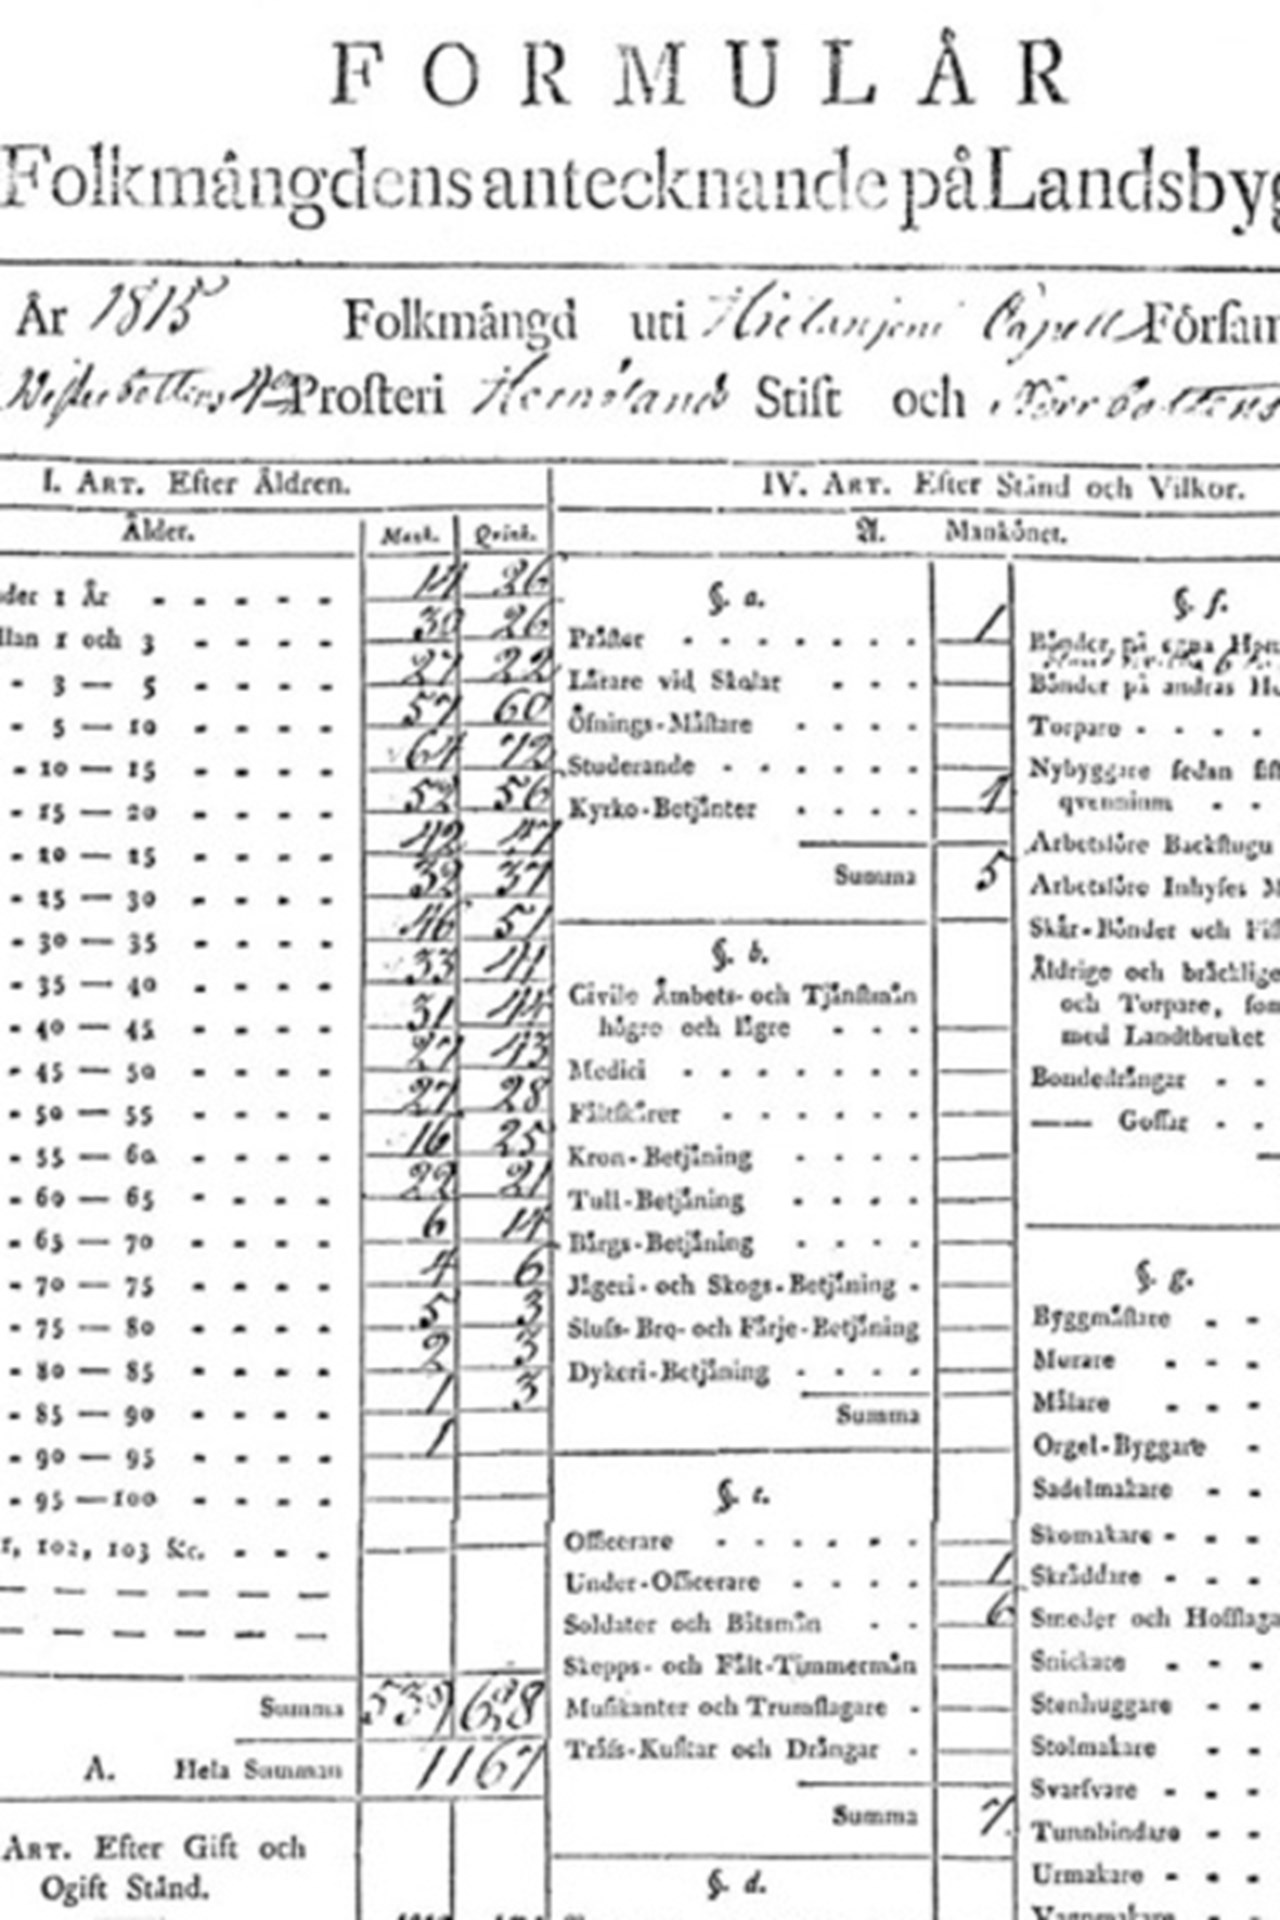 FORMULÄR
Folkmängdens antecknande på Landsbyg
År 1815 Folkmängd uti Hietanjemi Capell Försam
Prosteri Hernösands Stift och Norrbottens
I. ART. Efter Åldren.
Ålder. Mank. Qvink.
nder 1 År - - - - - 14 26
llan 1 och 3 - - - - 30 26
- 3 — 5 - - - - 27 22
- 5 — 10 - - - - 57 60
- 10 — 15 - - - - 64 72
- 15 — 20 - - - - 52 56
- 20 — 25 - - - - 42 47
- 25 — 30 - - - - 32 37
- 30 — 35 - - - - 46 51
- 35 — 40 - - - - 33 41
- 40 — 45 - - - - 31 44
- 45 — 50 - - - - 27 43
- 50 — 55 - - - - 27 28
- 55 — 60 - - - - 16 25
- 60 — 65 - - - - 22 21
- 65 — 70 - - - - 6 14
- 70 — 75 - - - - 4 6
- 75 — 80 - - - - 5 3
- 80 — 85 - - - - 2 3
- 85 — 90 - - - - 1 3
- 90 — 95 - - - - 1
- 95 — 100 - - - -
1, 102, 103 &c. - - -
Summa 539 628
A. Hela Summan 1167
ART. Efter Gift och
Ogift Stånd.
IV. ART. Efter Stånd och Vilkor.
A. Mankönet.
§. a.
Präster - - - - - - - 1
Lärare vid Skolar - - -
Öfnings-Mästare - - - -
Studerande - - - - - -
Kyrko-Betjänter - - - -
Summa 5
§. b.
Civile Ämbets- och Tjänstmän
högre och lägre - - -
Medici - - - - - - -
Fältskärer - - - - - -
Kron-Betjäning - - - -
Tull-Betjäning - - - -
Bärgs-Betjäning - - - -
Jägeri- och Skogs-Betjäning -
Sluss- Bro- och Färje-Betjäning
Dykeri-Betjäning - - - -
Summa
§. c.
Officerare - - - - - -
Under-Officerare - - - - 1
Soldater och Båtsmän - - 6
Skepps- och Fält-Timmermän
Musikanter och Trumslagare -
Träss-Kuskar och Drängar -
Summa 7
§. d.
§. f.
Bönder på egna Hem
Bönder på andras He
Torpare - - - -
Nybyggare sedan sist
qvennium - -
Arbetsföre Backstugu
Arbetsföre Inhyses M
Skär-Bönder och Fis
Åldrige och bräcklige
och Torpare, som
med Landtbruket
Bondedrängar - -
—— Gossar - -
§. g.
Byggmästare - -
Murare - - -
Målare - - -
Orgel-Byggare -
Sadelmakare - -
Skomakare - - -
Skräddare - - -
Smeder och Hofslaga
Snickare - - -
Stenhuggare - -
Stolmakare - -
Svarfvare - - -
Tunnbindare - -
Urmakare - - -
Vagnmakare